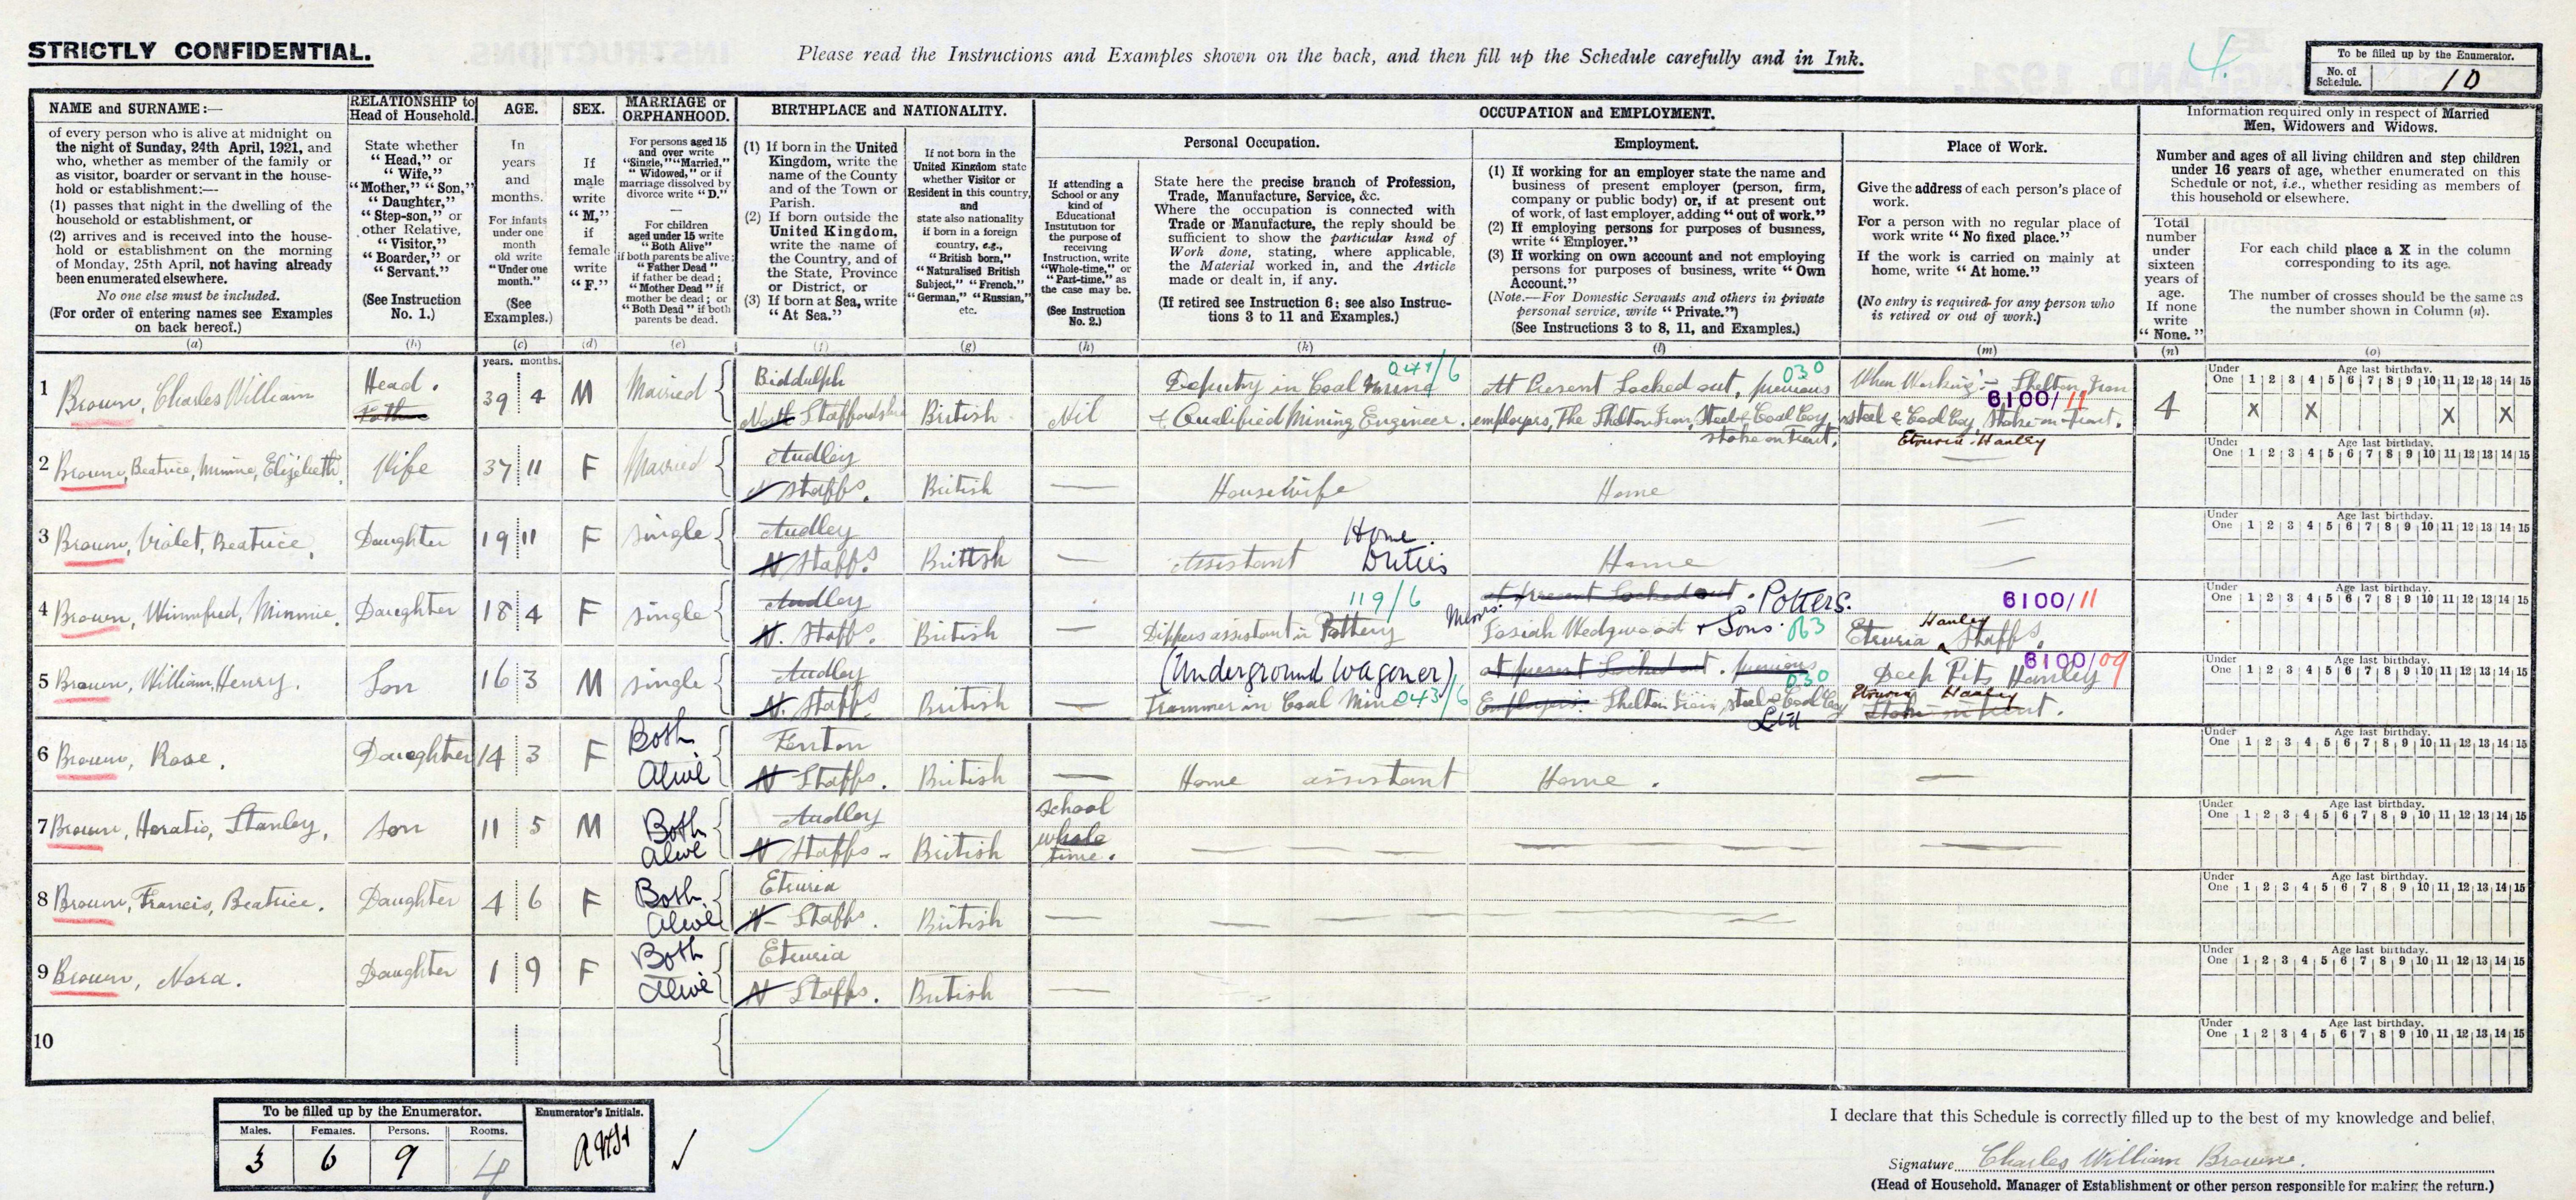 STRICTLY CONFIDENTIAL.
Please read the Instructions and Examples shown on the back, and then fill up the Schedule carefully and in Ink.
4.
To be filled up by the Enumerator.
No. of Schedule. 10
NAME and SURNAME:—
of every person who is alive at midnight on
the night of Sunday, 24th April, 1921, and
who, whether as member of the family or
as visitor, boarder or servant in the house-
hold or establishment:—
(1) passes that night in the dwelling of the
household or establishment, or
(2) arrives and is received into the house-
hold or establishment on the morning
of Monday, 25th April, not having already
been enumerated elsewhere.
No one else must be included.
(For order of entering names see Examples
on back hereof.)
(a)
RELATIONSHIP to
Head of Household.
State whether
"Head," or
"Wife,"
"Mother," "Son,"
"Daughter,"
"Step-son," or
other Relative,
"Visitor,"
"Boarder," or
"Servant."
(See Instruction
No. 1.)
(b)
AGE.
In
years
and
months.
For infants
under one
month
old write
"Under one
month."
(See
Examples.)
(c)
SEX.
If
male
write
"M,"
if
female
write
"F."
(d)
MARRIAGE or
ORPHANHOOD.
For persons aged 15
and over write
"Single," "Married,"
"Widowed," or if
marriage dissolved by
divorce write "D."
For children
aged under 15 write
"Both Alive"
if both parents be alive;
"Father Dead"
if father be dead;
"Mother Dead" if
mother be dead; or
"Both Dead" if both
parents be dead.
(e)
BIRTHPLACE and NATIONALITY.
(1) If born in the United
Kingdom, write the
name of the County
and of the Town or
Parish.
(2) If born outside the
United Kingdom,
write the name of
the Country, and of
the State, Province
or District, or
(3) If born at Sea, write
"At Sea."
(f)
If not born in the
United Kingdom state
whether Visitor or
Resident in this country,
and
state also nationality
if born in a foreign
country, e.g.,
"British born,"
"Naturalised British
Subject," "French,"
"German," "Russian,"
etc.
(g)
OCCUPATION and EMPLOYMENT.
Personal Occupation.
If attending a
School or any
kind of
Educational
Institution for
the purpose of
receiving
Instruction, write
"Whole-time," or
"Part-time," as
the case may be.
(See Instruction
No. 2.)
(h)
State here the precise branch of Profession,
Trade, Manufacture, Service, &c.
Where the occupation is connected with
Trade or Manufacture, the reply should be
sufficient to show the particular kind of
Work done, stating, where applicable,
the Material worked in, and the Article
made or dealt in, if any.
(If retired see Instruction 6: see also Instruc-
tions 3 to 11 and Examples.)
(k)
Employment.
(1) If working for an employer state the name and
business of present employer (person, firm,
company or public body) or, if at present out
of work, of last employer, adding "out of work."
(2) If employing persons for purposes of business,
write "Employer."
(3) If working on own account and not employing
persons for purposes of business, write "Own
Account."
(Note.—For Domestic Servants and others in private
personal service, write "Private.")
(See Instructions 3 to 8, 11, and Examples.)
(l)
Place of Work.
Give the address of each person's place of
work.
For a person with no regular place of
work write "No fixed place."
If the work is carried on mainly at
home, write "At home."
(No entry is required for any person who
is retired or out of work.)
(m)
Information required only in respect of Married
Men, Widowers and Widows.
Number and ages of all living children and step children
under 16 years of age, whether enumerated on this
Schedule or not, i.e., whether residing as members of
this household or elsewhere.
Total
number
under
sixteen
years of
age.
If none
write
"None."
(n)
For each child place a X in the column
corresponding to its age.
The number of crosses should be the same as
the number shown in Column (n).
(o)
years. months.
1 Brown, Charles William
Head.
Father
39 4 M Married
Biddulph
North Staffordshire
British
Nil
Deputy in Coal mine 041/6
& Qualified Mining Engineer.
At Present Locked out, previous 030
employers, The Shelton Iron, Steel & Coal Coy,
Stoke on Trent.
When Working:— Shelton Iron
6100/11
steel & Coal Coy, Stoke-on-Trent.
Etruria Hanley
4
Under One 1 2 3 4 5 6 7 8 9 10 11 12 13 14 15
Age last birthday.
X X X X
2 Brown, Beatrice, Minnie, Elizebeth.
Wife 37 11 F Married
Audley
N Staffs.
British — Housewife Home —
Under One 1 2 3 4 5 6 7 8 9 10 11 12 13 14 15
Age last birthday.
3 Brown, Violet, Beatrice.
Daughter 19 11 F single
Audley
N Staffs.
British — Assistant Home Duties Home —
Under One 1 2 3 4 5 6 7 8 9 10 11 12 13 14 15
Age last birthday.
4 Brown, Winnifred, Minnie.
Daughter 18 4 F single
Audley
N. Staffs.
British —
119/6
Dippers assistant in Pottery
at present Locked out. Potters.
Messrs. Josiah Wedgwood & Sons. 063
6100/11
Etruria Hanley Staffs.
Under One 1 2 3 4 5 6 7 8 9 10 11 12 13 14 15
Age last birthday.
5 Brown, William, Henry.
Son 16 3 M single
Audley
N. Staffs
British —
(Underground Wagoner)
Trammer in Coal Mine 043/6
at present Locked out. previous
030
Employers. Shelton Iron, steel & Coal Coy
Ltd
6100/09
Deep Pits Hanley
Etruria Hanley
Stoke on Trent.
Under One 1 2 3 4 5 6 7 8 9 10 11 12 13 14 15
Age last birthday.
6 Brown, Rose.
Daughter 14 3 F Both Alive
Fenton
N Staffs.
British — Home assistant Home. —
Under One 1 2 3 4 5 6 7 8 9 10 11 12 13 14 15
Age last birthday.
7 Brown, Horatio, Stanley,
son 11 5 M Both Alive
Audley
N Staffs
British
school
whole
time.
Under One 1 2 3 4 5 6 7 8 9 10 11 12 13 14 15
Age last birthday.
8 Brown, Francis, Beatrice.
Daughter 4 6 F Both Alive
Etruria
N Staffs.
British —
Under One 1 2 3 4 5 6 7 8 9 10 11 12 13 14 15
Age last birthday.
9 Brown, Nora.
Daughter 1 9 F Both Alive
Etruria
N Staffs.
British —
Under One 1 2 3 4 5 6 7 8 9 10 11 12 13 14 15
Age last birthday.
10
Under One 1 2 3 4 5 6 7 8 9 10 11 12 13 14 15
Age last birthday.
To be filled up by the Enumerator.
Males. Females. Persons. Rooms.
3 6 9 4
Enumerator's Initials.
I declare that this Schedule is correctly filled up to the best of my knowledge and belief,
Signature Charles William Brown.
(Head of Household, Manager of Establishment or other person responsible for making the return.)